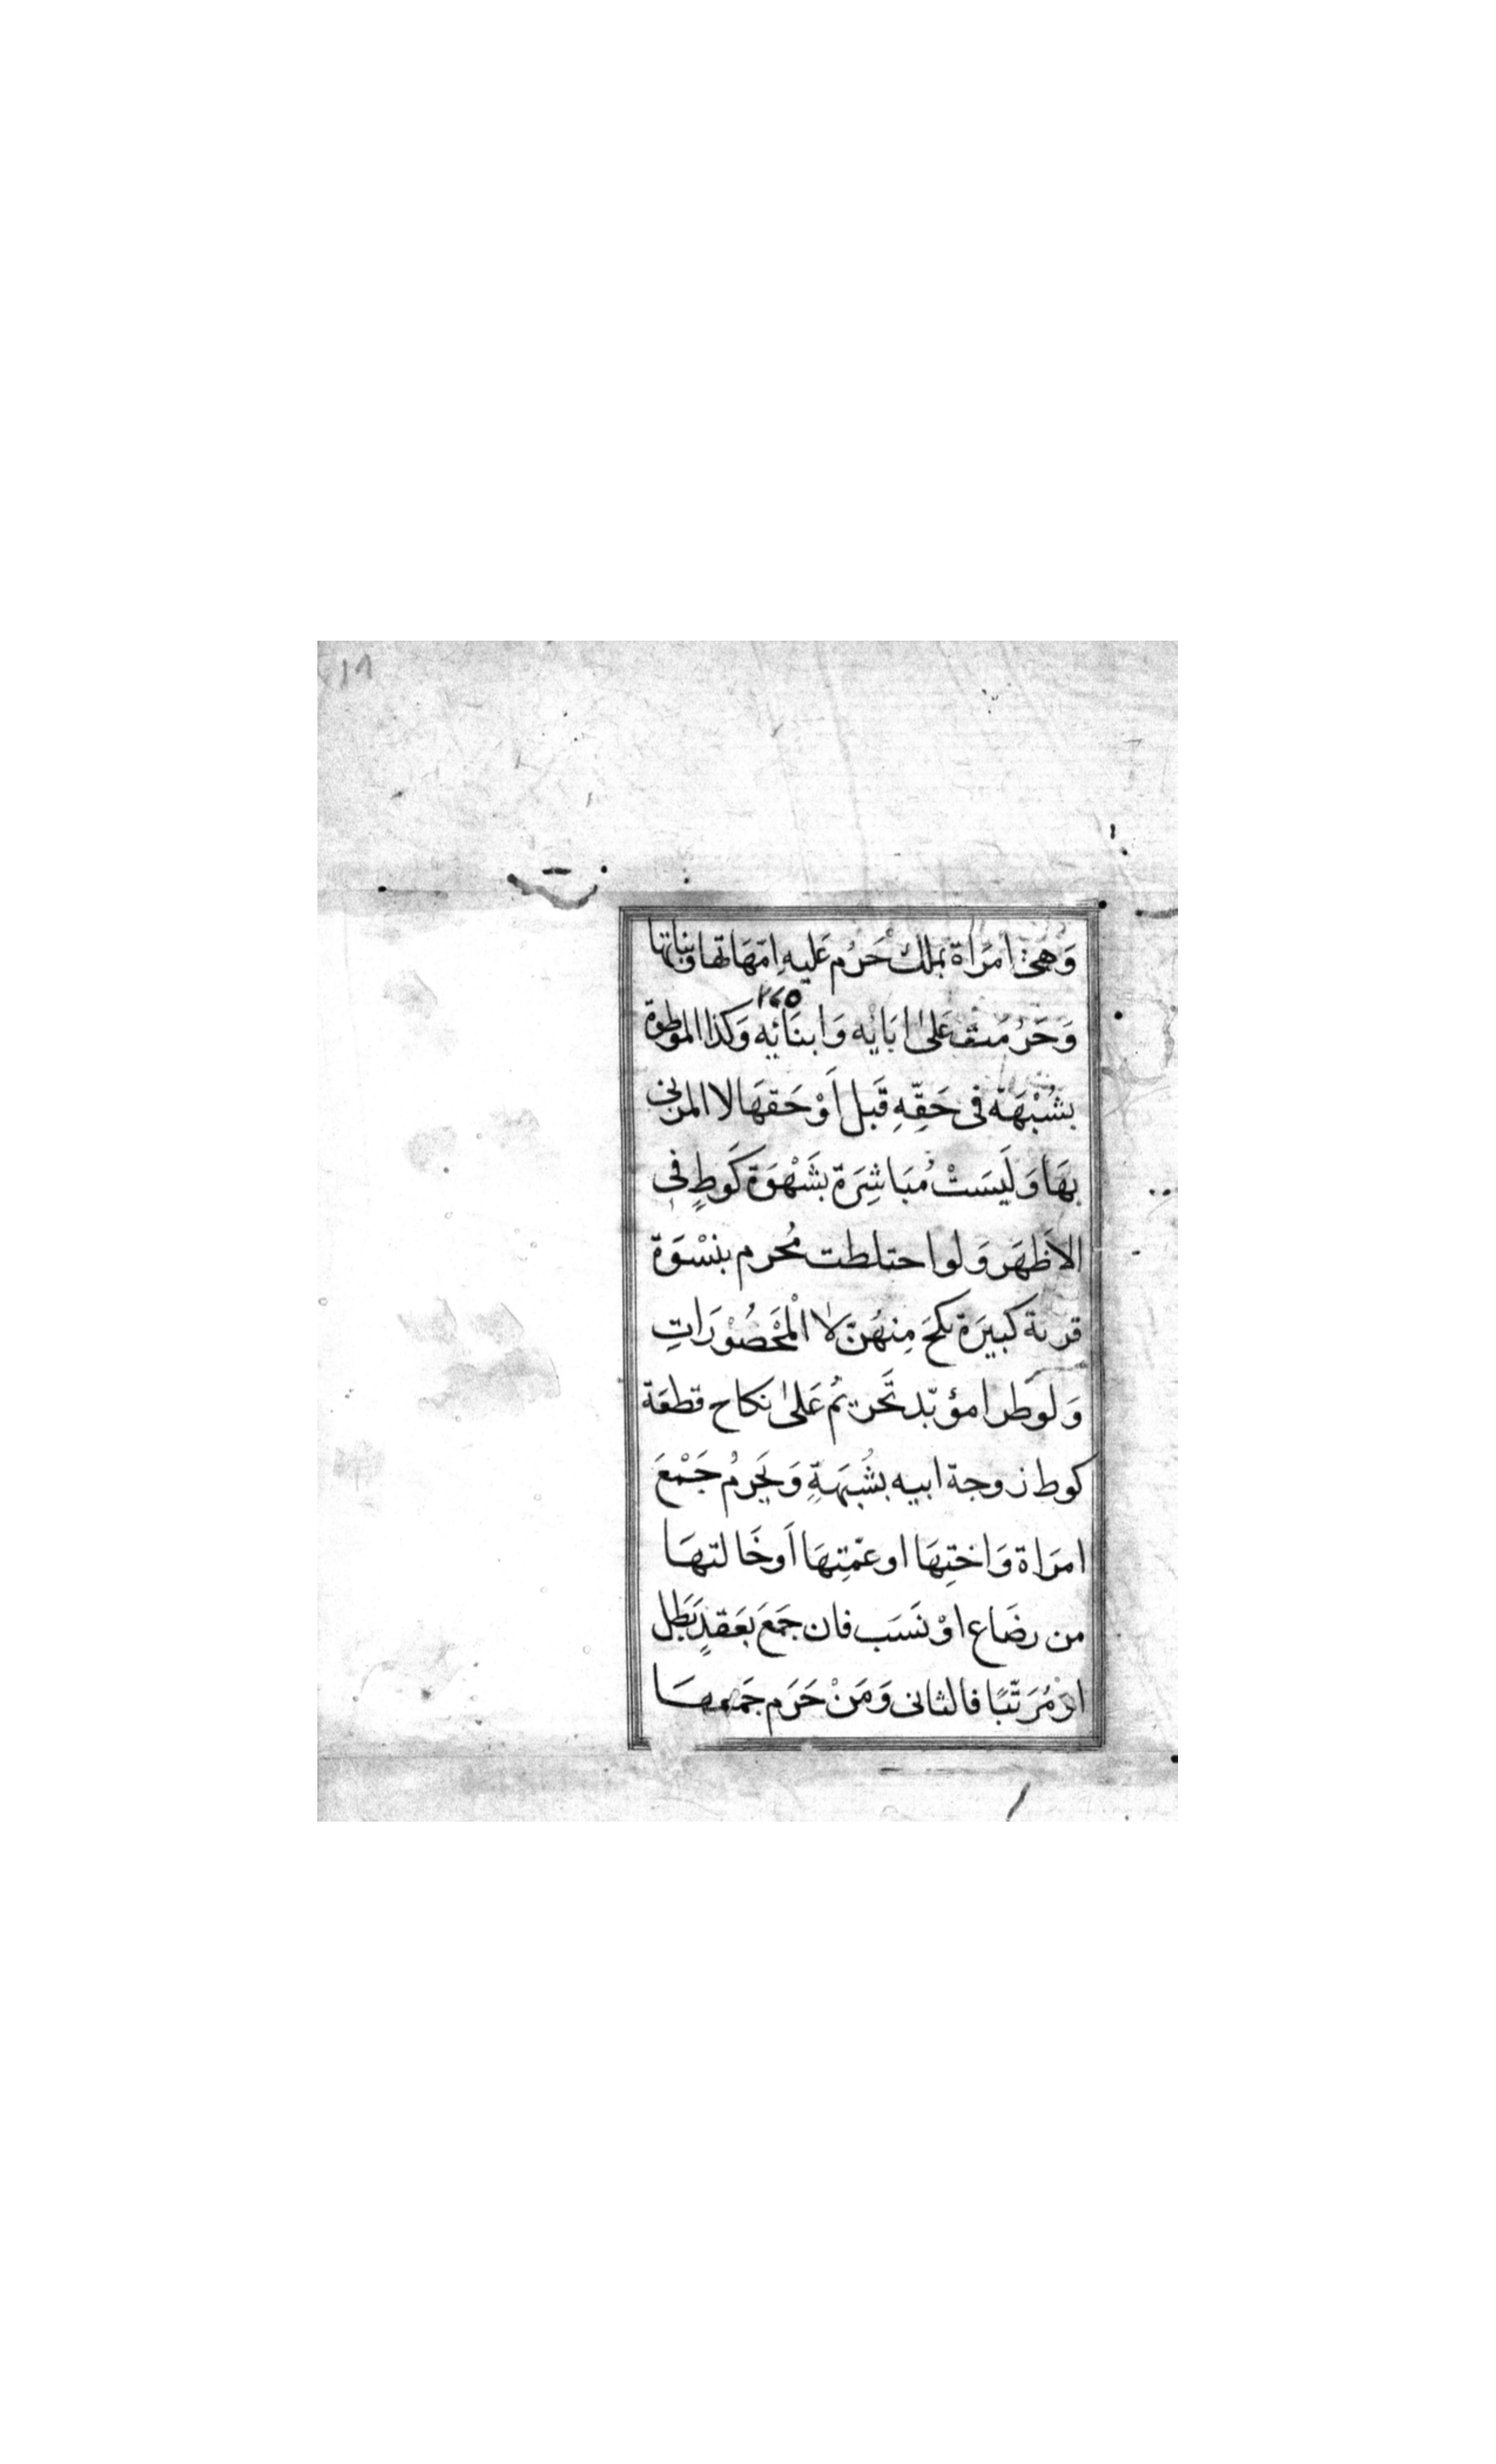 وَهِىَ امرَاة بملك حَرُم عَليهِ امّهَاتها وبناتها
وَحَرُمَت عَلىٰ ابَائِه وَابنَائِه وَكذا الموطوة
بشُبْهَة فى حَقّهِ قَبل اَوْ حَقهَا لا المزنى
بهَا وَلَيسَتْ مُبَاشِرَة بشَهْوَة كَوَطٍ فى
الاَظهَر وَلو احتلطت مُحرم بنسْوَة
قرية كبيرَة نكحَ مِنهُنّ لَا الْمَحْصُوْرَاتِ
وَلو طرا مؤبّد تَحريمُ عَلىٰ نكاح قطعَة
كوط زوجة ابيه بشُبهَةٍ وَيَحرمُ جَمْعَ
امرَاة وَاختِهَا او عمّتِهَا اَو خَالتهَا
من رضَاع اوْ نَسَب فان جمَعَ بعَقدٍ بَطل
اوْ مُرَتّبًا فالثانى وَمَنْ حَرَم جَمعهمَا